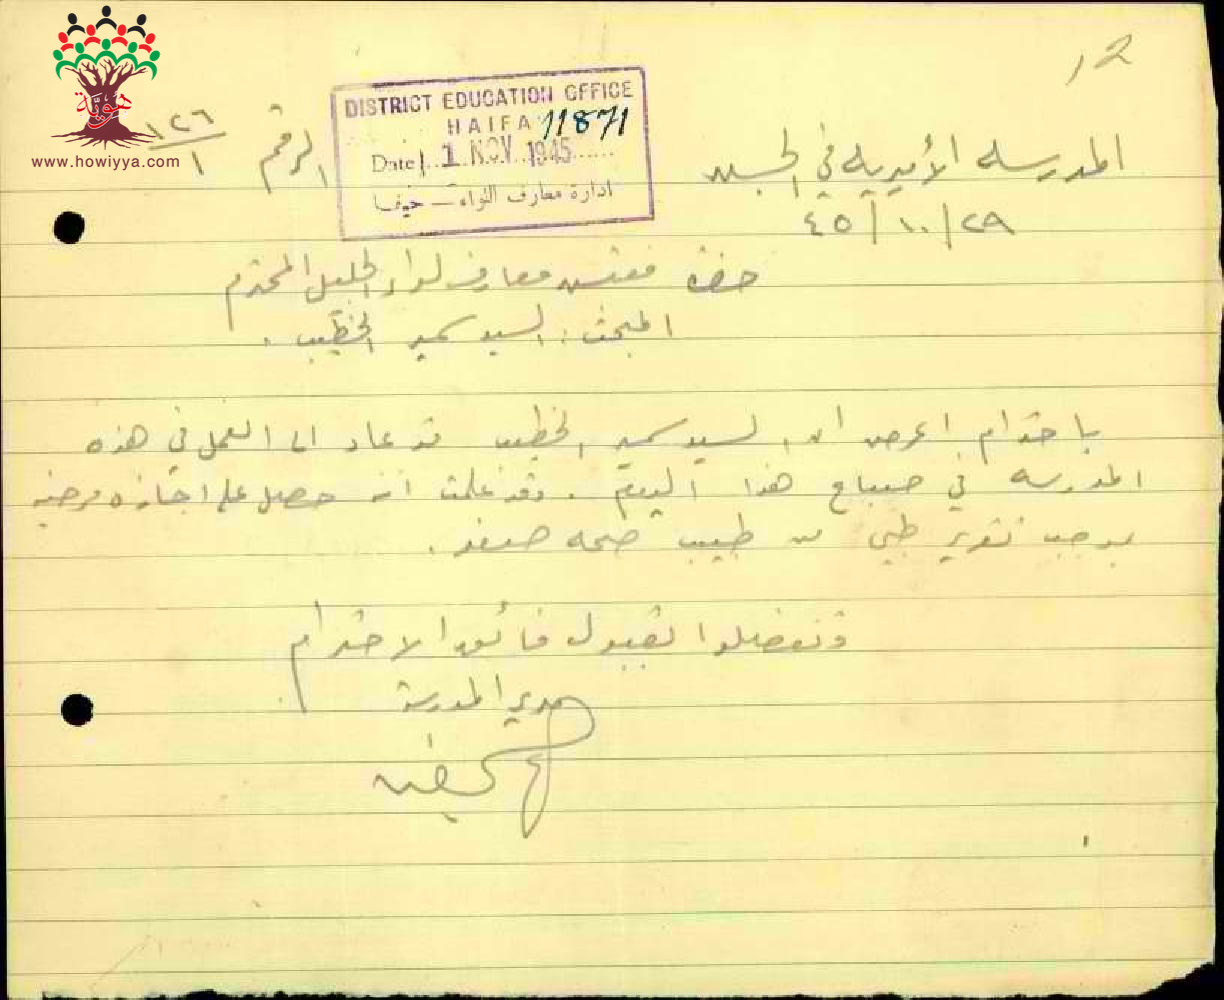 12
هويّة
www.howiyya.com
المدرسة الأميرية في الجش
الرقم ١٢٦/١
٢٩/١٠/٤٥
DISTRICT EDUCATION OFFICE
HAIFA 11871
Date 1 NOV 1945
ادارة معارف اللواء – حيفا
حضرة مفتش معارف لواء الجليل المحترم
المبحث: السيد سمير الخطيب .
باحترام اعرض ان السيد سمير الخطيب قد عاد الى العمل في هذه
المدرسة في صباح هذا اليوم . وقد علمت انه حصل على اجازة مرضية
بموجب تقرير طبي من طبيب صحة صفد .
وتفضلوا بقبول فائق الاحترام
مدير المدرسة